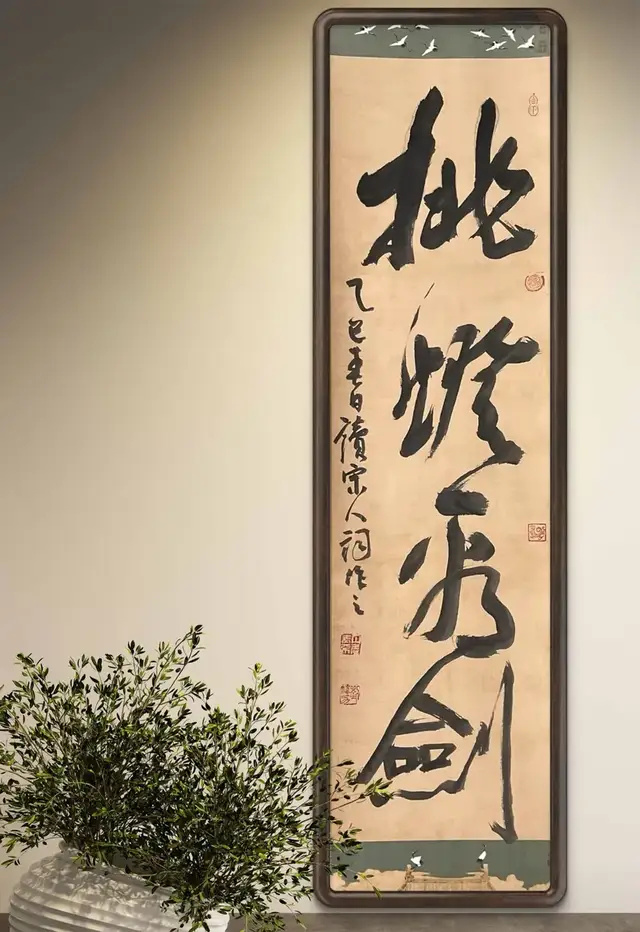 挑燈看劍
乙巳春日讀宋人詞作之